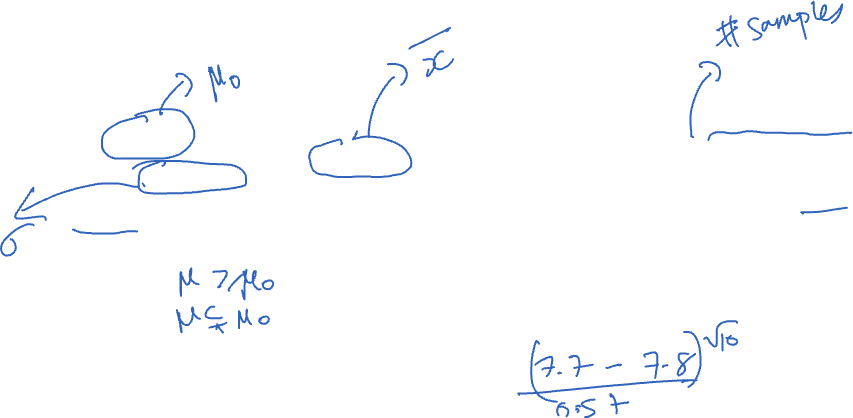 # samples
x̄
μ₀
σ
μ > μ₀
μ ≤ μ₀
(7.7 - 7.8)√10
0.57